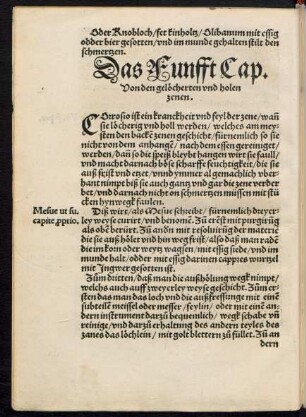 Oder Knobloch/fet kinholtz/Olibanum mit essig
odder bier gesotten/vnd im munde gehalten stilt den
schmertzen.
Das Funfft Cap.
Von den gelöcherten vnd holen
zenen.
COrosio ist ein kranckheit vnd feyl der zene/wañ
sie löcherig vnd holl werden/welches am mey-
sten den backẽ zenen geschicht/fürnemlich so sie
nicht von dem anhangẽ/nach dem essen gereiniget
werden/dañ so die speiß bleybt hangen wirt sie faull/
vnd macht darnach böse scharffe feuchtigkeit/die sie
auß frißt vnd etzet/vnnd ymmer al gemachlich vber-
hant nimpt biß sie auch gantz vnd gar die zene verder
bet/vnd darnach nicht on schmertzen müssen mit stü
cken hynwegk faulen.
Mesue ut su.
capite, pprio.
Diß wirt/als Mesue schreibt/fürnemlich dreyer
ley weyse curirt/vnd benomẽ. Zũ erst mit purgirũg
als obẽ berürt. Zũ andñ mit resoluirũg der materiẽ
die sie auß hölet vnd hin weg frißt/also das man rade
die im kom oder weytz wagsen/mit essig siede/vnd im
munde halt/odder mit essig darinen cappres wurtzel
mit Ingwer gesotten ist.
Zũm dritten/daß man die außhölung wegk nimpt/
welchs auch auff zweyerley weyse geschicht. Zũm er-
sten das man das loch vnd die außfressunge mit einẽ
subteilẽ meissel oder messer/feylin/oder mit einẽ an-
dern instrument darzũ bequemlich/wegk schabe vñ
reinige/vnd darzũ erhaltung des andern teyles des
zanes das löchlein/mit golt blettern zũ füllet. Zũ an
dern